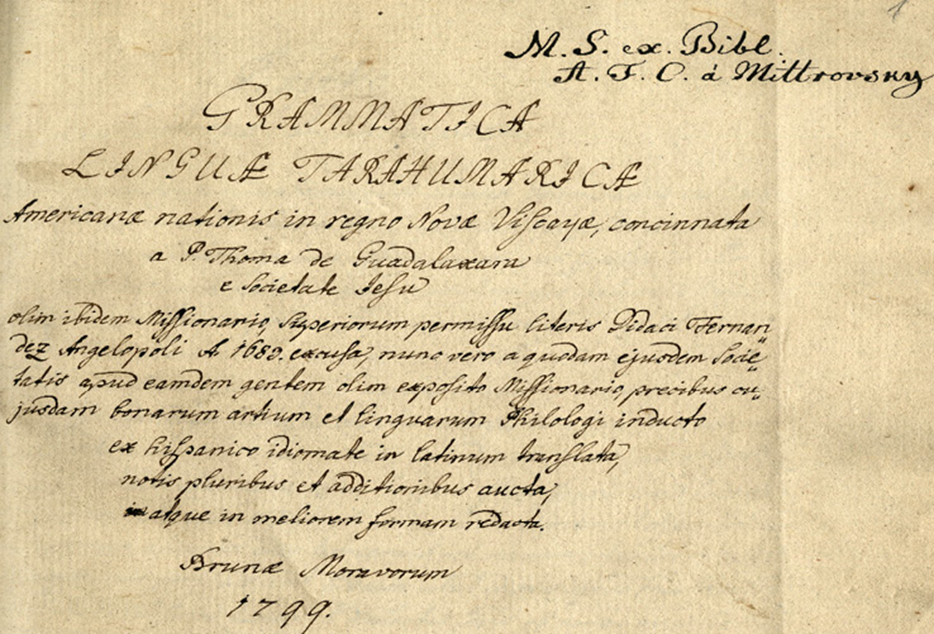 1
M. S. ex. Bibl.
A. F. C. á Mittrovsky
GRAMMATICA
LINGUÆ TARAHUMARICÆ
Americanæ nationis in regno Novæ Viscayæ, concinnata
a P. Thoma de Guadalaxara
e Societate Jesu
olim ibidem Missionario, Superiorum permissu literis Didaci Fernan„
dez Angelopoli A 1683. excusa, nunc vero a quodam ejusdem Socie„
tatis apud eamdem gentem olim exposito Missionario, precibus cu„
jusdam bonarum artium et linguarum Philologi inducto
ex hispanico idiomate in latinum translata,
notis pluribus et additionibus aucta,
atque in meliorem formam redacta.
Brunæ Moravorum
1799.